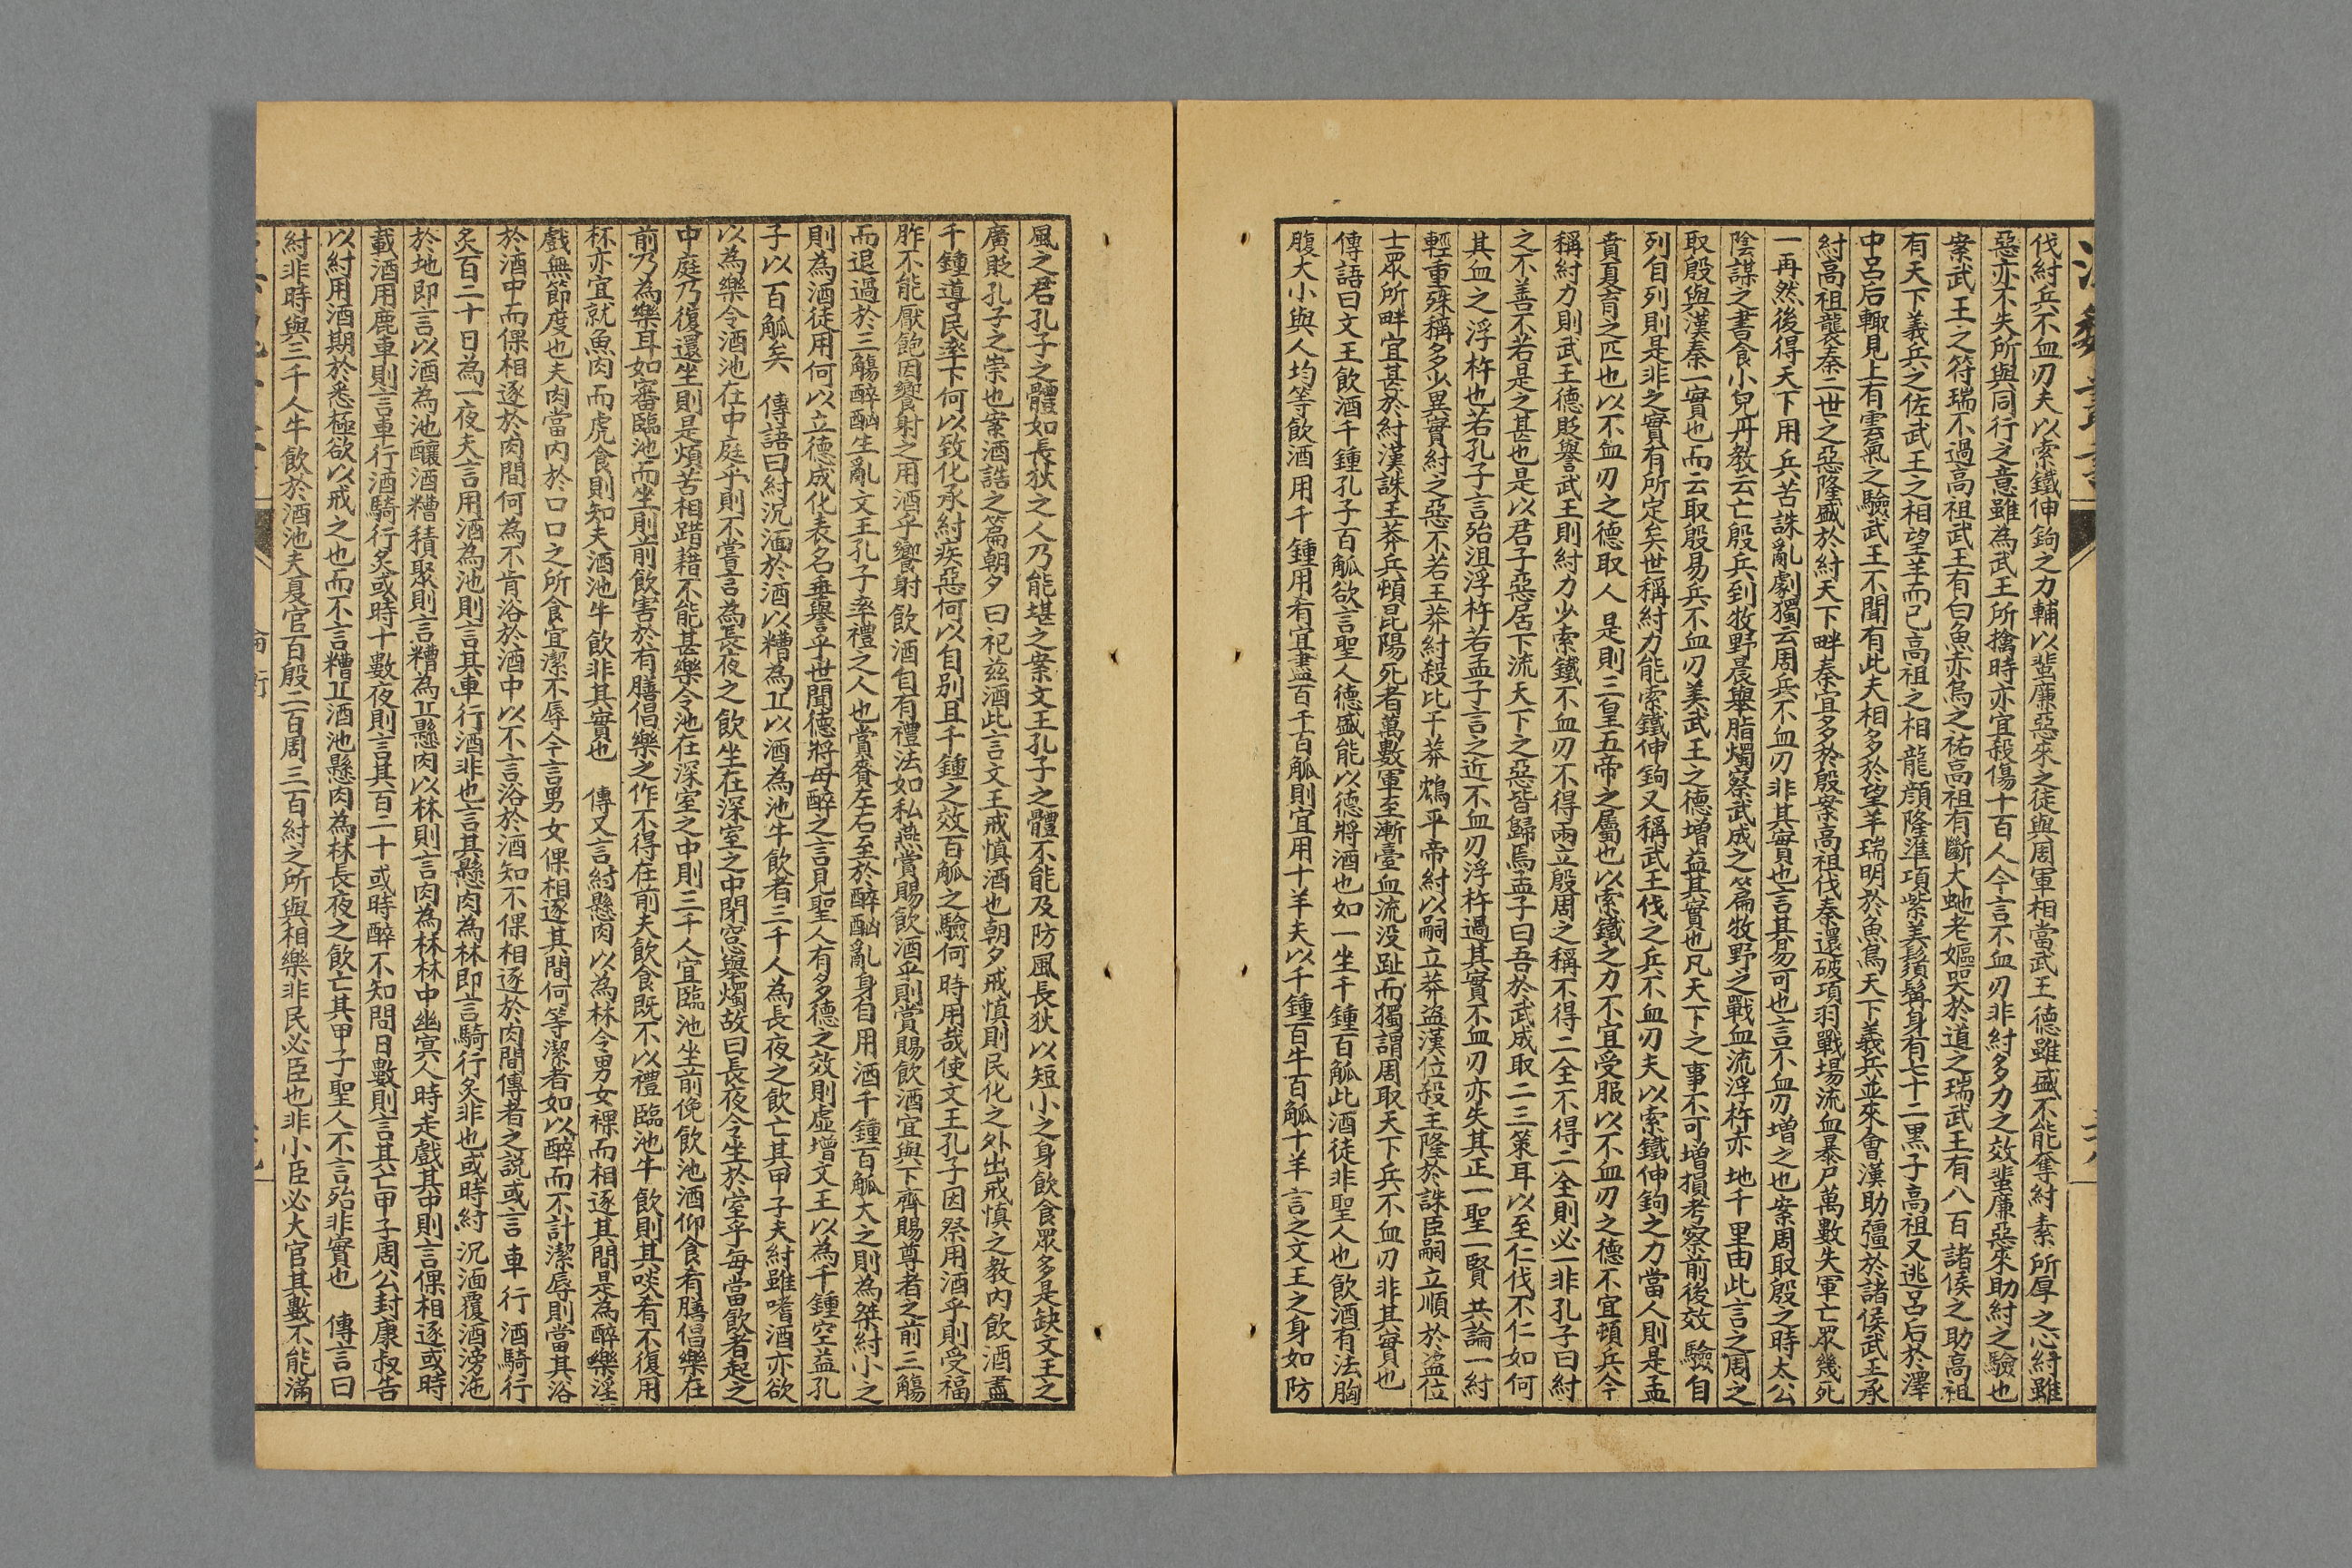 伐紂兵不血刃夫以索鐵伸鉤之力輔以蜚廉惡來之徒與周軍相當武王德雖盛不能奪紂素所厚之心紂雖
惡亦不失所與同行之意雖為武王所擒時亦宜殺傷十百人今言不血刃非紂多力之效蜚廉惡來助紂之驗也
案武王之符瑞不過高祖武王有白魚赤烏之祐高祖有斷大虵老嫗哭於道之瑞武王有八百諸侯之助高祖
有天下義兵之佐武王之相望羊而已高祖之相龍顔隆準項紫美鬚髯身有七十二黑子高祖又逃呂后於澤
中呂后輙見上有雲氣之驗武王不聞有此夫相多於望羊瑞明於魚烏天下義兵並來會漢助彊於諸侯武王承
紂高祖襲秦二世之惡隆盛於紂天下畔秦宜多於殷案高祖伐秦還破項羽戰場流血暴尸萬數失軍亡眾幾死
一再然後得天下用兵苦誅亂劇獨云周兵不血刃非其實也言其易可也言不血刃增之也案周取殷之時太公
陰謀之書食小兒丹教云亡殷兵到牧野晨舉脂燭察武成之篇牧野之戰血流浮杵赤地千里由此言之周之
取殷與漢秦一實也而云取殷易兵不血刃美武王之德增益其實也凡天下之事不可增損考察前後效驗自
列自列則是非之實有所定矣世稱紂力能索鐵伸鉤又稱武王伐之兵不血刃夫以索鐵伸鉤之力當人則是孟
賁夏育之匹也以不血刃之德取人是則三皇五帝之屬也以索鐵之力不宜受服以不血刃之德不宜頓兵今
稱紂力則武王德貶譽武王則紂力少索鐵不血刃不得兩立殷周之稱不得二全不得二全則必一非孔子曰紂
之不善不若是之甚也是以君子惡居下流天下之惡皆歸焉孟子曰吾於武成取二三策耳以至仁伐不仁如何
其血之浮杵也若孔子言殆沮浮杵若孟子言之近不血刃浮杵過其實不血刃亦失其正一聖一賢共論一紂
輕重殊稱多少異實紂之惡不若王莽紂殺比干莽鴆平帝紂以嗣立莽盜漢位殺主隆於誅臣嗣立順於盜位
士眾所畔宜甚於紂漢誅王莽兵頓昆陽死者萬數軍至漸臺血流没趾而獨謂周取天下兵不血刃非其實也
傳語曰文王飲酒千鍾孔子百觚欲言聖人德盛能以德將酒也如一坐千鍾百觚此酒徒非聖人也飲酒有法胸
腹大小與人均等飲酒用千鍾用肴宜盡百牛百觚則宜用十羊夫以千鍾百牛百觚十羊言之文王之身如防
風之君孔子之體如長狄之人乃能堪之案文王孔子之體不能及防風長狄以短小之身飲食眾多是缺文王之
廣貶孔子之崇也案酒誥之篇朝夕曰祀兹酒此言文王戒慎酒也朝夕戒慎則民化之外出戒慎之教内飲酒盡
千鍾導民率下何以致化承紂疾惡何以自别且千鍾之效百觚之驗何時用哉使文王孔子因祭用酒乎則受福
胙不能厭飽因饗射之用酒乎饗射飲酒自有禮法如私燕賞賜飲酒乎則賞賜飲酒宜與下齊賜尊者之前三觴
而退過於三觴醉酗生亂文王孔子率禮之人也賞賚左右至於醉酗亂身自用酒千鍾百觚大之則為桀紂小之
則為酒徒用何以立德成化表名垂譽乎世聞德將毋醉之言見聖人有多德之效則虛增文王以為千鍾空益孔
子以百觚矣　傳語曰紂沉湎於酒以糟為丠以酒為池牛飲者三千人為長夜之飲亡其甲子夫紂雖嗜酒亦欲
以為樂令酒池在中庭乎則不嘗言為長夜之飲坐在深室之中閉窓舉燭故曰長夜令坐於室乎每當飲者起之
中庭乃復還坐則是煩苦相踖藉不能甚樂令池在深室之中則三千人宜臨池坐前俛飲池酒仰食肴膳倡樂在
前乃為樂耳如審臨池而坐則前飲害於肴膳倡樂之作不得在前夫飲食既不以禮臨池牛飲則其啖肴不復用
杯亦宜就魚肉而虎食則知夫酒池牛飲非其實也　傳又言紂懸肉以為林令男女裸而相逐其間是為醉樂淫
戲無節度也夫肉當内於口口之所食宜潔不辱今言男女倮相逐其間何等潔者如以醉而不計潔辱則當其浴
於酒中而倮相逐於肉間何為不肯浴於酒中以不言浴於酒知不倮相逐於肉間傳者之説或言車行酒騎行
炙百二十日為一夜夫言用酒為池則言其車行酒非也言其懸肉為林即言騎行炙非也或時紂沉湎覆酒滂沲
於地即言以酒為池釀酒糟積聚則言糟為丠懸肉以林則言肉為林林中幽㝠人時走戲其中則言倮相逐或時
載酒用鹿車則言車行酒騎行炙或時十數夜則言其百二十或時醉不知問日數則言其亡甲子周公封康叔告
以紂用酒期於悉極欲以戒之也而不言糟丠酒池懸肉為林長夜之飲亡其甲子聖人不言殆非實也　傳言曰
紂非時與三千人牛飲於酒池夫夏官百殷二百周三百紂之所與相樂非民必臣也非小臣必大官其數不能滿